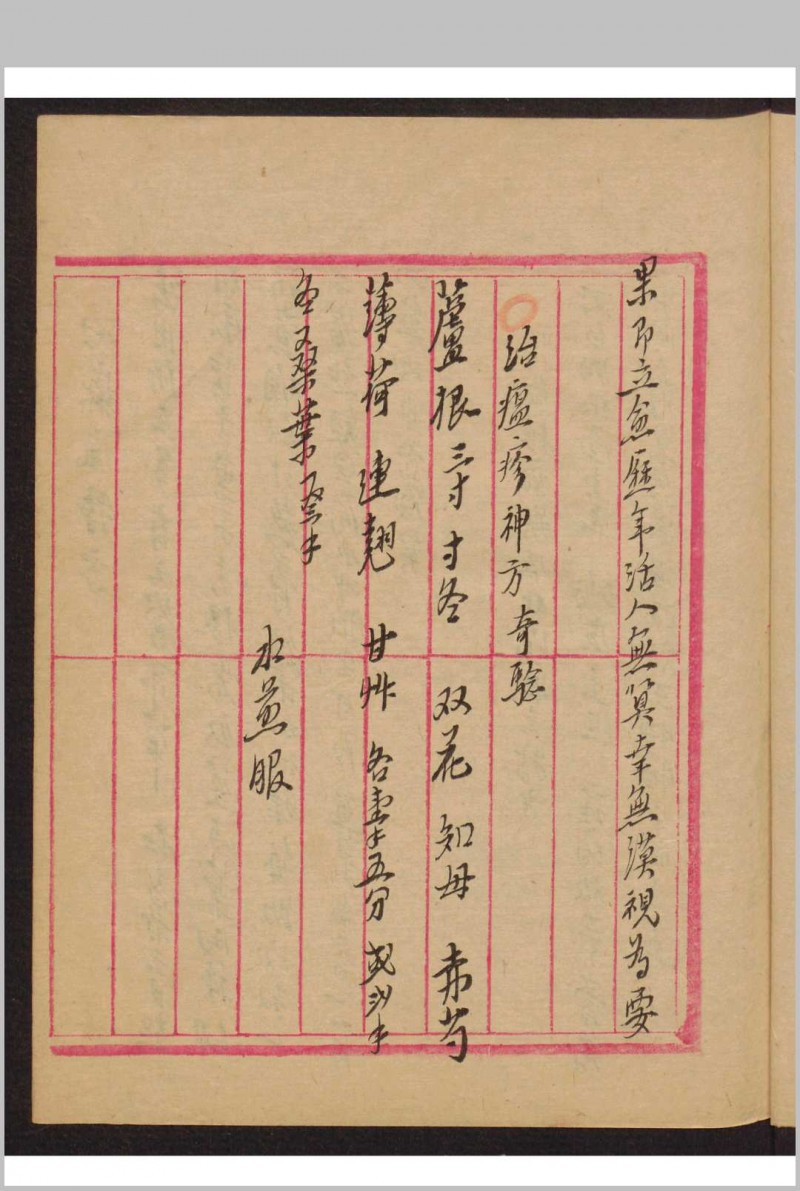 果即立愈歷年活人無算幸無漠視為要
治瘟疹神方奇驗
蘆根三寸 寸冬 双花 知母 赤芍
薄荷 連翹 甘艸 各壹半五分 或
冬桑葉
水煎服